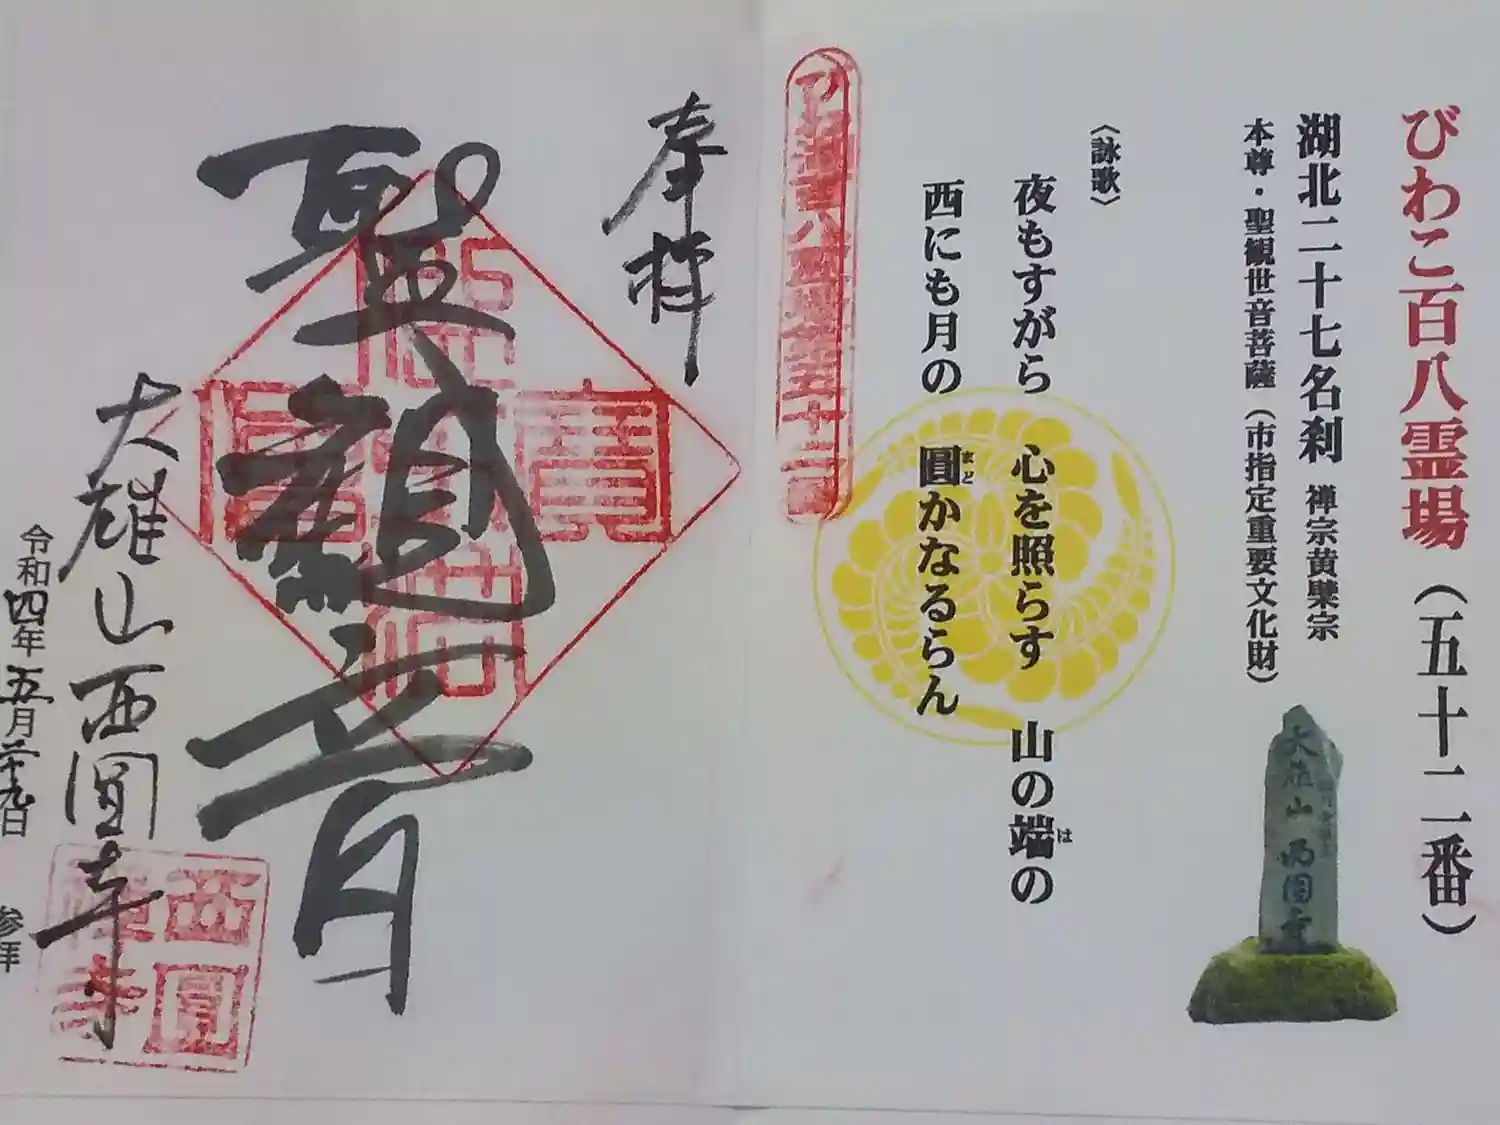 びわこ百八霊場（五十二番）
湖北二十七名刹 禅宗黄檗宗
本尊・聖観世音菩薩（市指定重要文化財）
大雄山 西圓寺
〈詠歌〉
夜もすがら 心を照らす 山の端の
は
西にも月の 圓かなるらん
まど
びわ湖百八霊場第五十二番
奉拝
聖観音
佛法僧寶
大雄山西圓寺
西圓禅寺
令和四年五月二十九日 参拝